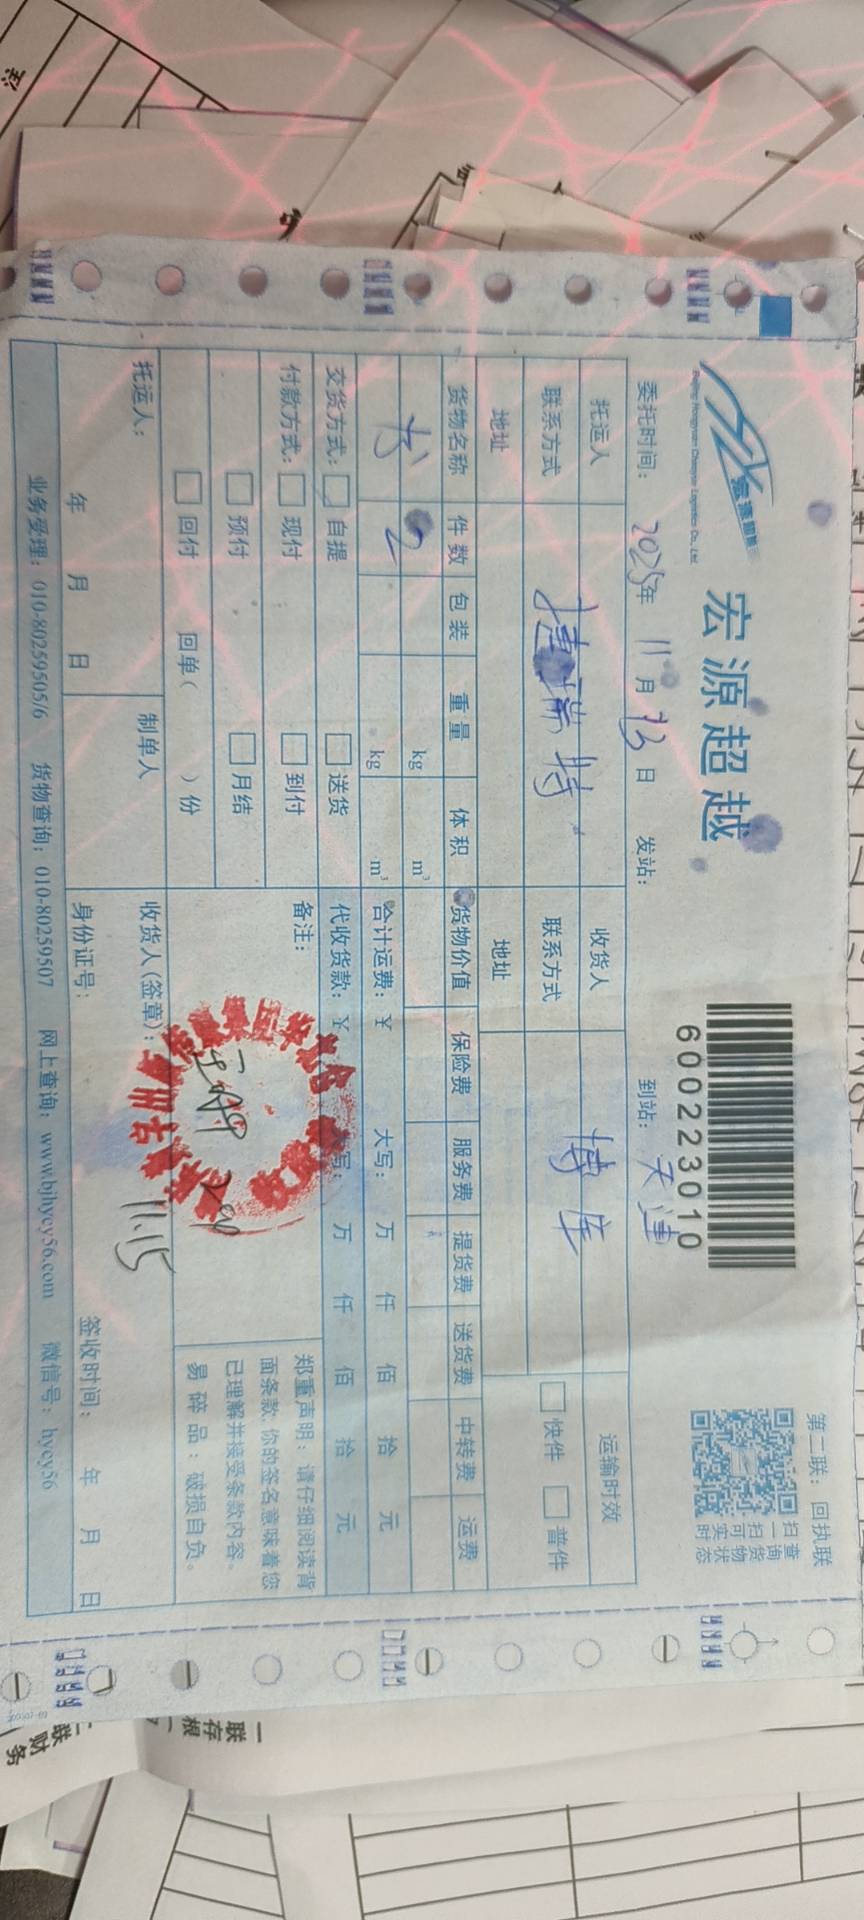 第二联：回执联
宏源超越
宏源超越
Beijing Hongyuan Chaoyue Logistics Co., Ltd.
600223010
扫一扫可实时
查询货物状态
委托时间： 2025年 11月 13日 发站： 到站： 天津
托运人 收货人 运输时效
联系方式 捷瑞特 联系方式 博库 快件 普件
地址 地址
货物名称 件数 包装 重量 体积 货物价值 保险费 服务费 提货费 送货费 中转费 运费
书 2 kg m³
kg m³ 合计运费：¥ 大写： 万 仟 佰 拾 元
交货方式： 自提 送货 代收货款：¥ 大写： 万 仟 佰 拾 元
付款方式： 现付 到付 备注：
预付 月结
回付 回单（ ）份
郑重声明：请仔细阅读背
面条款，你的签名意味着您
已理解并接受条款内容。
易碎品：破损自负。
托运人： 制单人 收货人(签章)：
11.15
年 月 日 身份证号： 签收时间： 年 月 日
业务受理：010-80259505/6 货物查询：010-80259507 网上查询：www.bjhycy56.com 微信号：hycy56
注
联存根
联财务